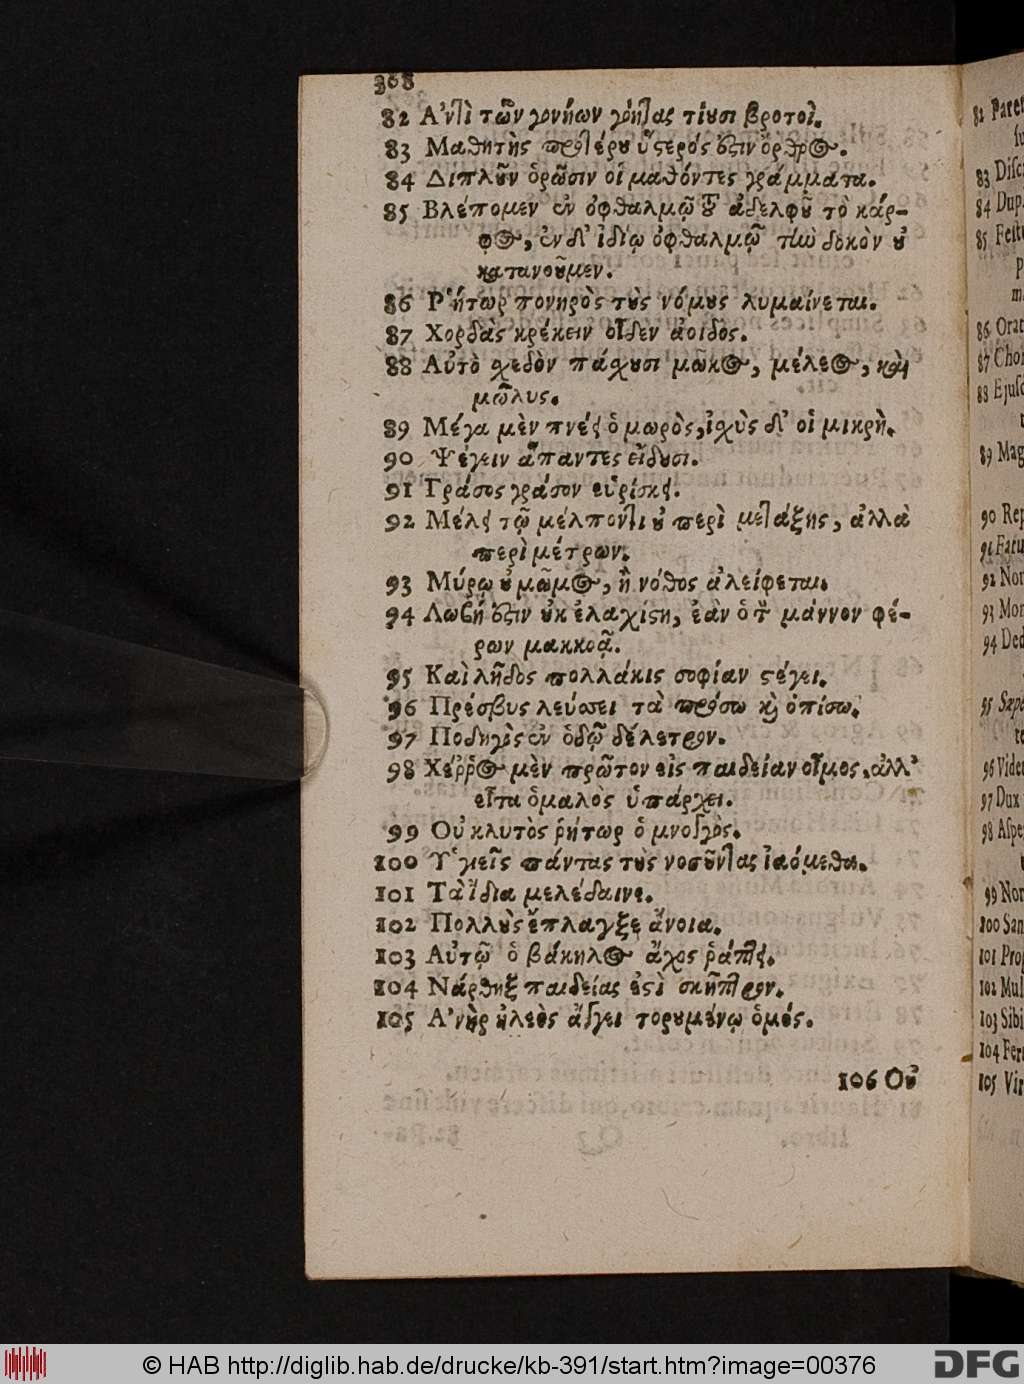 368
82 Ἀντὶ τῶν γονήων γονῆτας τίουσι βροτοί.
83 Μαθητὴς προτέρου ὕστερός ἐστιν ὄρθρος.
84 Διπλοῦν ὁρῶσιν οἱ μαθόντες γράμματα.
85 Βλέπομεν ἐν ὀφθαλμῷ τοῦ ἀδελφοῦ τὸ κάρ-
φος, ἐν δ' ἰδίῳ ὀφθαλμῷ τὴν δοκὸν οὐ
κατανοοῦμεν.
86 Ῥήτωρ πονηρὸς τοὺς νόμους λυμαίνεται.
87 Χορδὰς κρέκειν οἶδεν ἀοιδός.
88 Αὐτὸ σχεδὸν πάσχουσι μῶκος, μέλεος, καὶ
μῶλυς.
89 Μέγα μὲν πνέει ὁ μωρὸς, ἰσχὺς δ' οἱ μικρὴ.
90 Ψέγειν ἅπαντες εἴδουσι.
91 Γράσος γράσον εὑρίσκει.
92 Μέλει τῷ μέλποντι οὐ περὶ μετάξης, ἀλλὰ
περὶ μέτρων.
93 Μύρῳ οὐ μῶμος, ἢ νόθος ἀλείφεται.
94 Λωβή ἐστιν οὐκ ἐλαχίστη, ἐὰν ὁ τὸν μάννον φέ-
ρων μακκοᾷ.
95 Καὶ λῆδος πολλάκις σοφίαν στέγει.
96 Πρέσβυς λεύσσει τὰ πρόσω καὶ ὀπίσω.
97 Ποδηγὸς ἐν ὁδῷ δέλετρον.
98 Χέῤῥος μὲν πρῶτον εἰς παιδείαν οἶμος, ἀλλ'
εἶτα ὁμαλὸς ὑπάρχει.
99 Οὐ κλυτὸς ῥήτωρ ὁ μνοιγὸς.
100 Ὑγιεῖς πάντας τοὺς νοσοῦντας ἰαόμεθα.
101 Τὰ ἴδια μελέδαινε.
102 Πολλοὺς ἔπλαγξε ἄνοια.
103 Αὐτῷ ὁ βάκηλος ἄχος ῥάπτει.
104 Νάρθηξ παιδείας ἐστὶ σκῆπτρον.
105 Ἀνὴρ ἠλεὸς ἄγει τορουμένῳ ὁμός.
106 Οὐ
82
83 Disc
84 Dup
85 Festu
86 Orat
87 Chor
88 Ejusd
89 Mag
90 Rep
92 Non
93 Mor
94 Ded
95 Sæp
96 Vide
97 Dux
98 Aspe
99 Non
100 San
101 Prop
102 Mul
103 Sibi
104 Feru
105 Vir
© HAB http://diglib.hab.de/drucke/kb-391/start.htm?image=00376
DFG